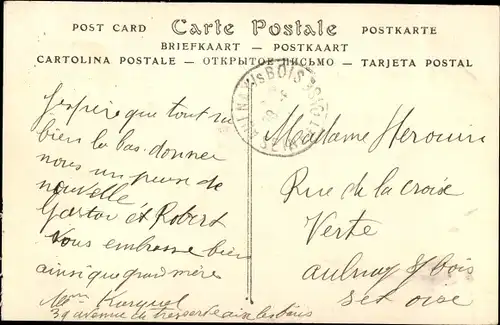 POST CARD Carte Postale POSTKARTE
BRIEFKAART — POSTKAART
CARTOLINA POSTALE — ОТКРЫТОЕ ПИСЬМО — TARJETA POSTAL
J'espère que tout va
bien la bas. donner
nous un peux de
nouvelle
Gaston et Robert
Vous embrasse bien
ainsi que grand mère
39 avenue de tresserve aix les bains
Madame Herouin
Rue de la croise
Verte
aulnay s/ bois
set oise